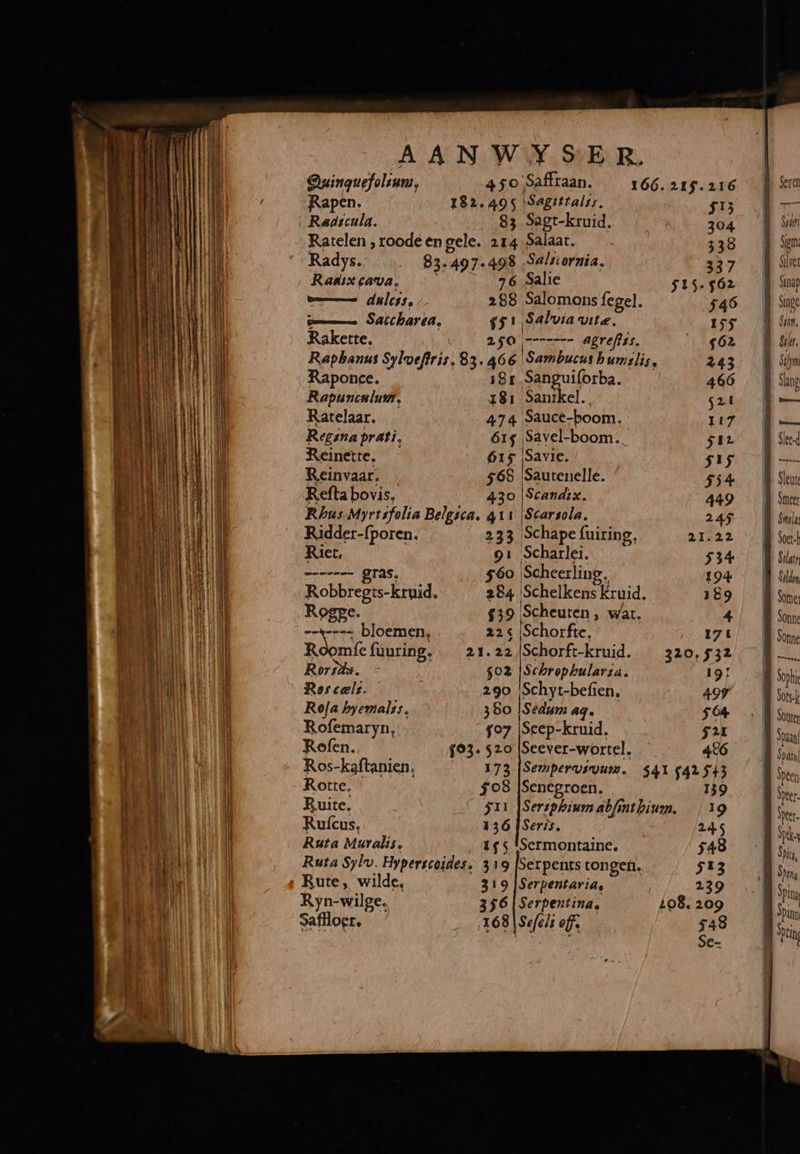 AANWYSER.
Quinquefolium, 450
Rapen. 182.495
Radicula. 83
Ratelen, roode en gele. 214
Radys. 83.497.498
Radix cava. 76
——— dulcis, 288
——— Saccharea, 551
Rakette. 250
Raphanus Sylvestris, 83.466
Raponce. 181
Rapunculum, 181
Ratelaar. 474
Regina prati, 615
Reinette. 615
Reinvaar. 568
Resta bovis, 430
Rhus Myrtifolia Belgica, 411
Ridder-sporen. 233
Riet, 91
------- gras, 560
Robbregts-kruid. 284
Rogge. 539
------- bloemen, 225
Roomse suuring. 21.22
Rorida. 502
Ros cæli. 290
Rosa hyemalis, 380
Rosemaryn, 507
Rosen. 503.520
Ros-kastanien, 173
Rotte, 508
Ruite, 511
Ruscus, 136
Ruta Muralis. 155
Ruta Sylv. Hypericoides. 319
Rute, wilde, 319
Ryn-wilge. 356
Saffloer. 168
Saffraan. 166.215.216
Sagittalis. 513
Sagt-kruid. 304
Salaat. 338
Salicornia. 337
Salie 515.562
Salomons segel. 546
Salvia vite. 155
------- agrestis. 562
Sambucus humilis, 243
Sanguisorba. 466
Sanikel. 521
Sauce-boom. 117
Savel-boom. 512
Savie. 515
Sautenelle. 554
Scandix. 449
Scariola. 245
Schape suiring, 21.22
Scharlei. 534
Scheerling. 194
Schelkens kruid. 189
Scheuten, wat. 4
Schorfte, 171
Schorft-kruid. 320,532
Schrophularia. 191
Schyt-besien. 499
Sedum aq. 564
Seep-kruid. 521
Seever-wortel. 486
Sempervivum. 541 542 543
Senegroen. 139
Seriphium absinthium. 19
Seris. 245
Sermontaine. 548
Serpents tongen. 513
Serpentaria, 239
Serpentina, 108.209
Seseli off. 548
Se-